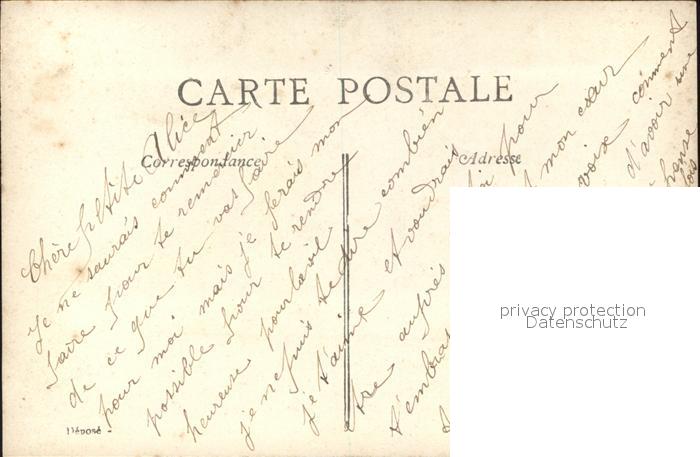 CARTE POSTALE
Correspondance
Adresse
Chère petite Alice
Je ne saurais comment
faire pour te remercier
de ce que tu vas faire
pour moi mais je ferais mon
possible pour te rendre
heureuse pour la vie
je ne puis te dire combien
je t'aime et voudrais
être auprès pour
t'embras mon cœur
voix
comment
d'avoir une
privacy protection
Datenschutz
Déposé